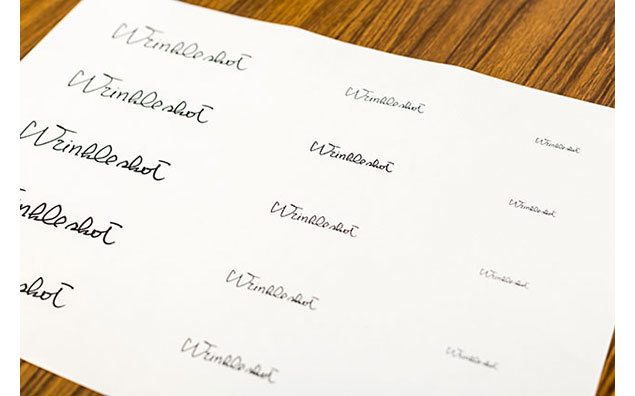 Wrinkle shot
Wrinkle shot
Wrinkle shot
Wrinkle shot
Wrinkle shot
Wrinkle shot
Wrinkle shot
Wrinkle shot
Wrinkle shot
inkle shot
Wrinkle shot
Wrinkle shot
shot
Wrinkle shot